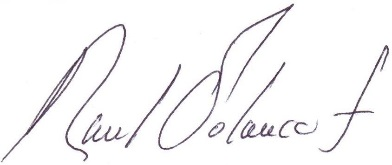 Raul Polanco f